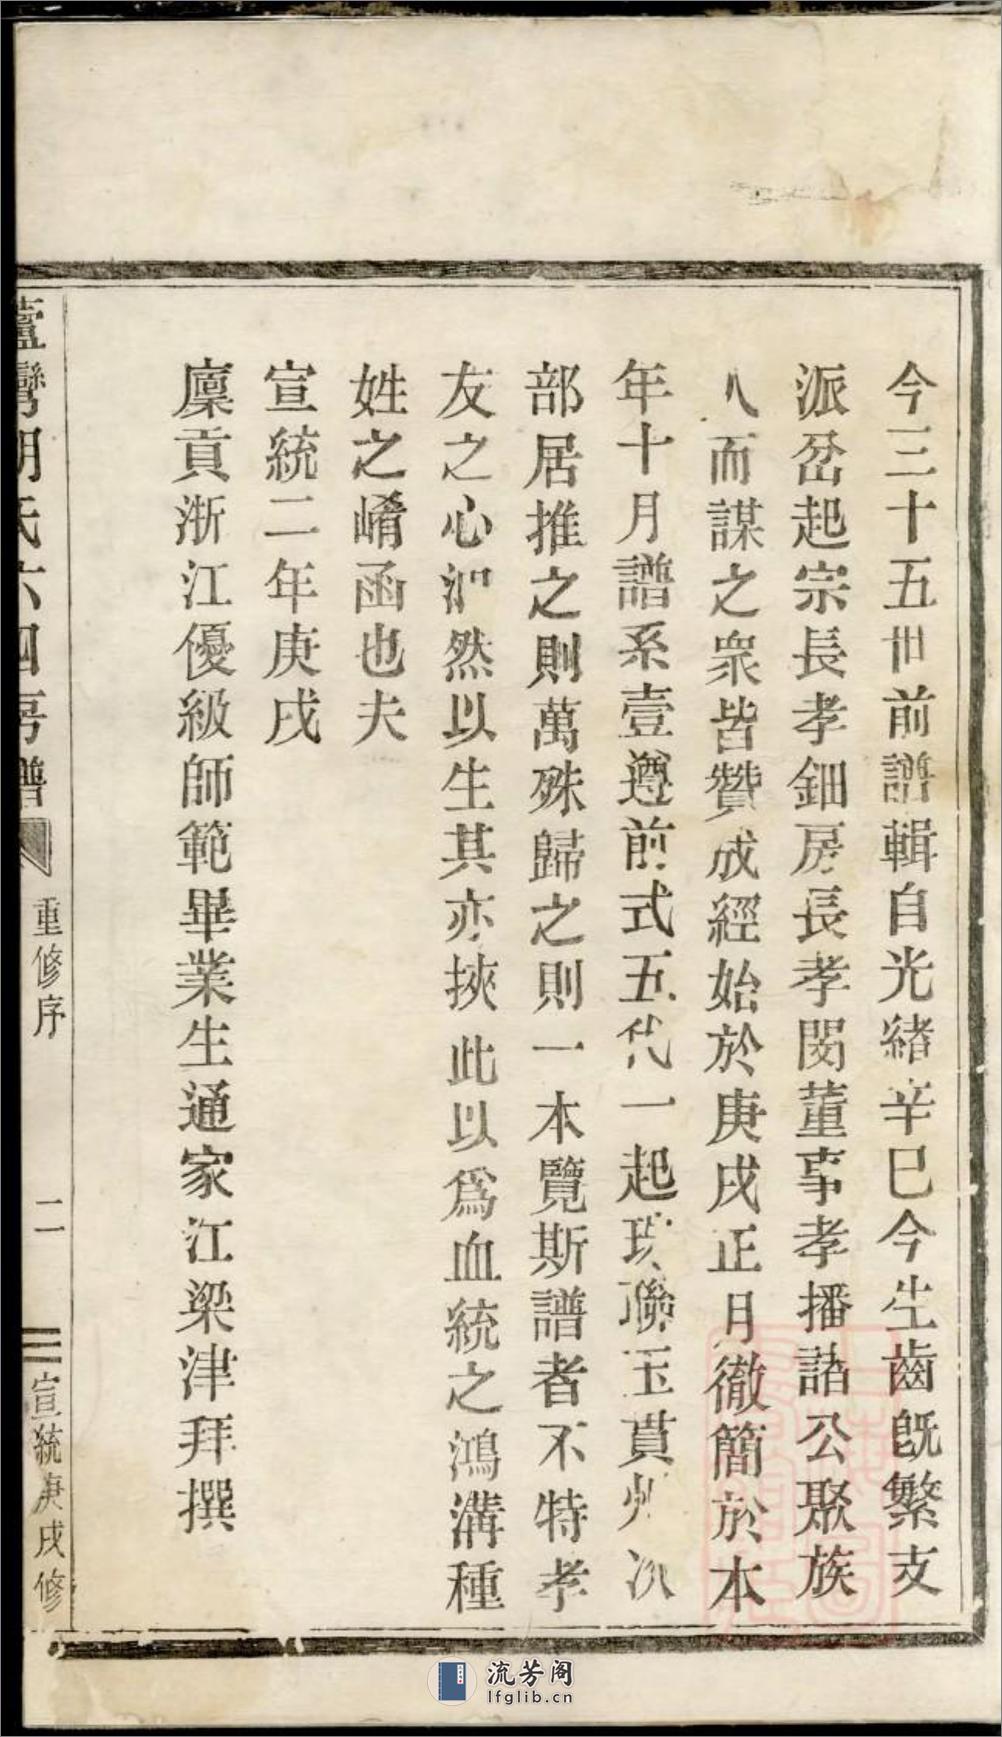 今三十五世前譜輯自光緒辛巳今生齒旣繁支
派岔起宗長孝鈿房長孝閔董事孝播諸公聚族
人而謀之衆皆贊成經始於庚戌正月徹簡於本
年十月譜系壹遵前式五代一起珠聯玉貫州次
部居推之則萬殊歸之則一本覽斯譜者不特孝
友之心油然以生其亦挾此以爲血統之鴻溝種
姓之崤函也夫
宣統二年庚戌
廩貢浙江優級師範畢業生通家江梁津拜撰
蘆灣胡氏六四房譜 重修序 二 宣統庚戌修
流芳阁
lfglib.cn